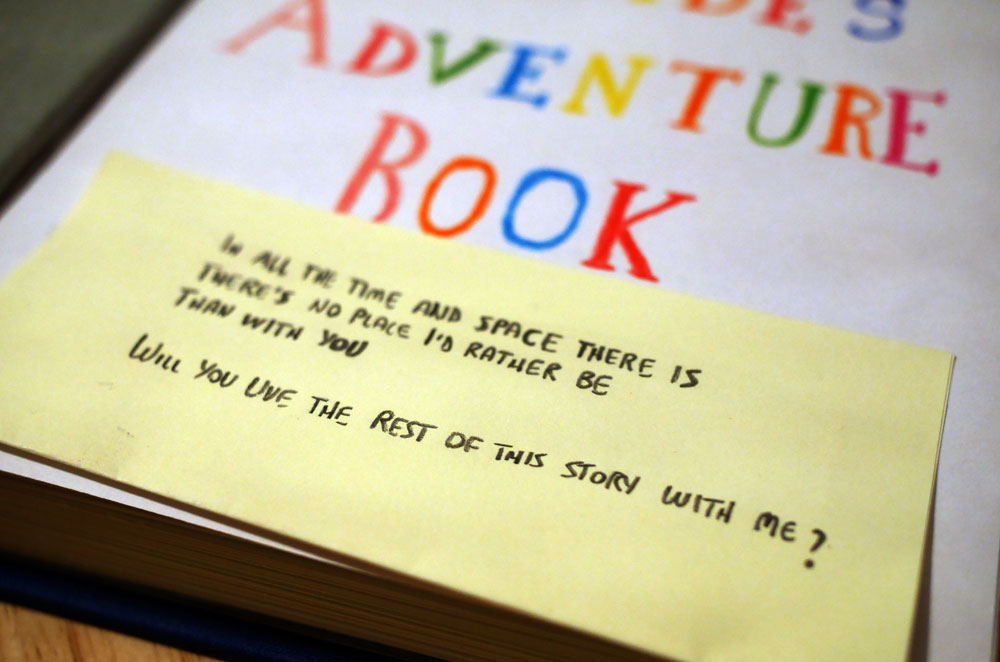 ADVENTURE
BOOK
IN ALL THE TIME AND SPACE THERE IS
THERE'S NO PLACE I'D RATHER BE
THAN WITH YOU
WILL YOU LIVE THE REST OF THIS STORY WITH ME?